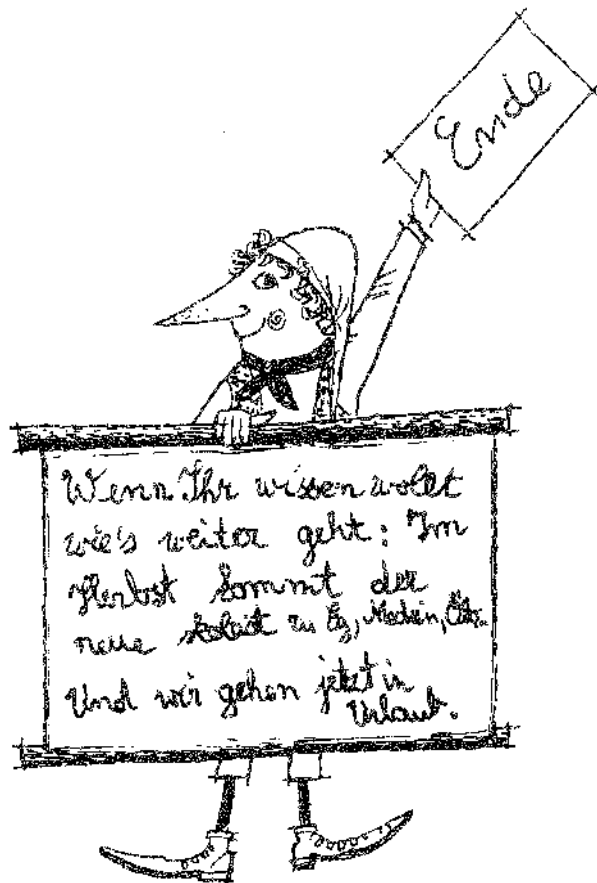 Ende
Wenn Ihr wissen wollt
wie's weiter geht: Im
Herbst kommt der
neue zu
Und wir gehen jetzt in
Urlaub.